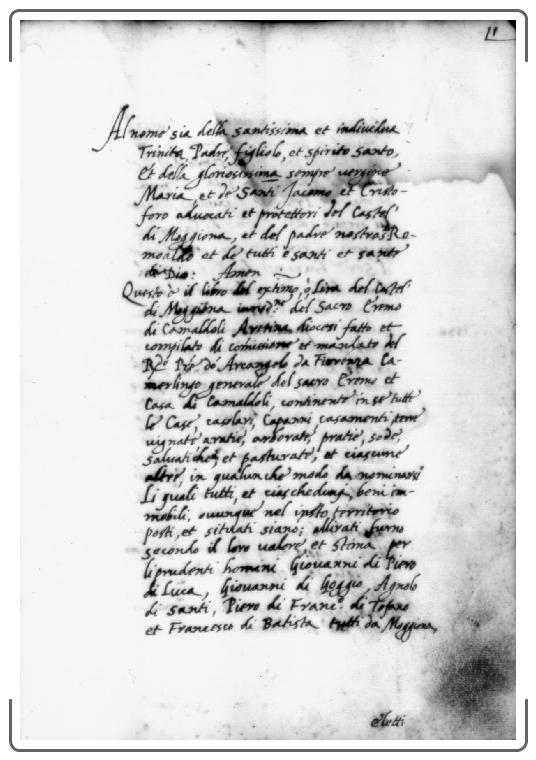 11
Al nome sia della santissima et individua
Trinita, Padre, figliolo, et spirito santo,
Et della gloriosissima sempre vergine
Maria, et de Santi Jacomo et Cristo-
foro advocati et protettori del Castel
di Moggiona, et del padre nostro S. Ro-
moaldo et de tutti e santi et sante
de Dio: Amen
Questo è il libro del extimo, o Lira del Castel
di Moggiona del Sacro Eremo
di Camaldoli Aretina diocesi fatto et
compilato di comissione et mandato del
R.do P.re do Arcangelo da Fiorenza Ca-
merlingo generale del sacro Eremo et
Casa di Camaldoli, continente in se tutte
le Case, casolari, Capanni, casamenti, terre
vignate aratie, arborate, pratie, sode,
salvatiche, et pasturate, et ciascune
altre, in qualunche modo da nominarsi
Li quali tutti, et ciascheduna, beni im-
mobili, ovunque nel territorio
posti, et situati siano; allirati furno
secondo il loro valore, et stima per
li prudenti homini Giovanni di Piero
di Luca, Giovanni di Goggio, Agnolo
di Santi, Piero di Franc.o di Tofano
et Francesco di Batista tutti da Moggiona,